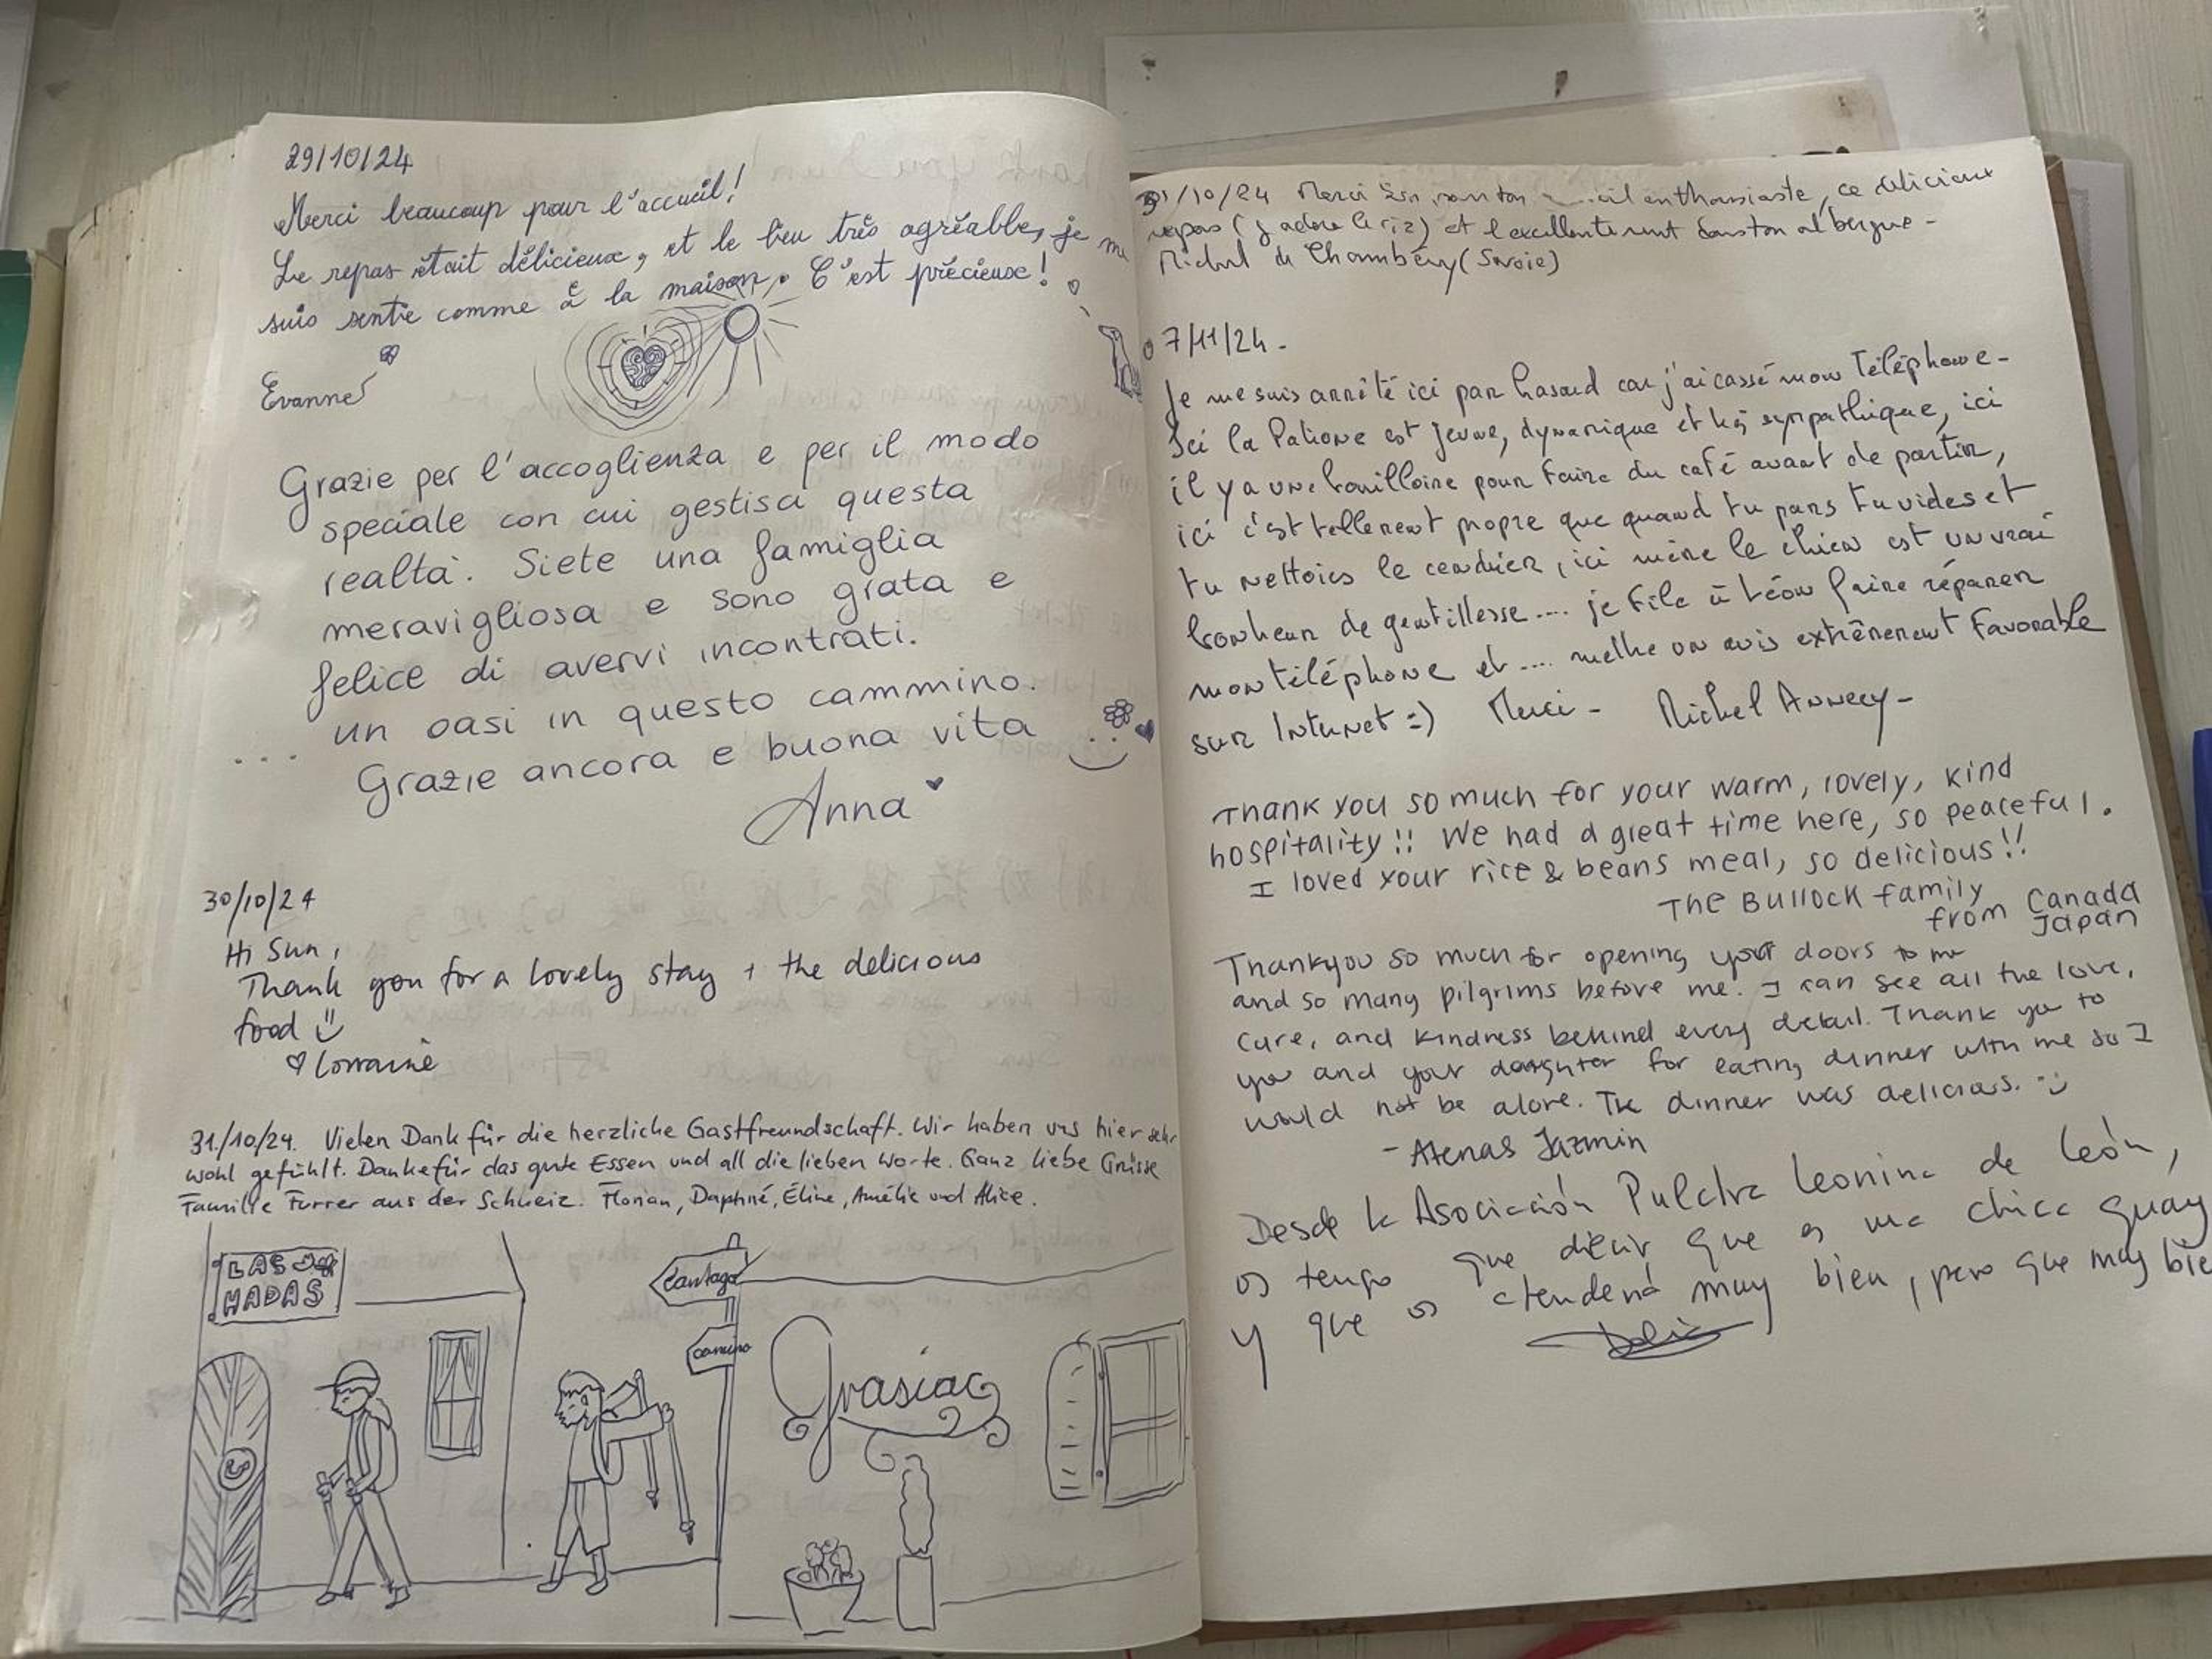 29/10/24
Merci beaucoup pour l'accueil!
Le repas était délicieux, et le lieu très agréable, je me
suis sentie comme à la maison. C'est précieuse!
Evanne
Grazie per l'accoglienza e per il modo
speciale con cui gestisci questa
realtà. Siete una famiglia
meravigliosa e sono grata e
felice di avervi incontrati.
... un oasi in questo cammino.
Grazie ancora e buona vita
Anna
30/10/24
Hi Sun,
Thank you for a lovely stay + the delicious
food
Lorraine
31/10/24. Vielen Dank für die herzliche Gastfreundschaft. Wir haben uns hier sehr
wohl gefühlt. Danke für das gute Essen und all die lieben Worte. Ganz liebe Grüsse
Familie Furrer aus der Schweiz. Florian, Daphné, Éline, Amélie und Alice.
LAS
HADAS
Santiago
camino
Grasias
/10/24 Merci pour ton enthousiaste, ce délicieux
repas (j'adore le riz) et l'excellente nuit dans ton albergue -
Michel de Chambéry (Savoie)
07/11/24 -
Je me suis arrêté ici par hasard car j'ai cassé mon Téléphone -
Ici la Patione est jeune, dynamique et très sympathique, ici
il y a une bouilloire pour faire du café avant de partir,
ici c'est tellement propre que quand tu pars tu vides et
tu nettoies le cendrier, ici même le chien est un vrai
bonheur de gentillesse .... je file à Léon faire réparer
mon téléphone et .... mettre un avis extrêmement favorable
sur Internet =) Merci - Michel Annecy -
Thank you so much for your warm, lovely, kind
hospitality!! We had a great time here, so peaceful.
I loved your rice & beans meal, so delicious!!
The Bullock family
from Canada
Japan
Thankyou so much for opening your doors to me
and so many pilgrims before me. I can see all the love,
care, and kindness behind every detail. Thank you to
you and your daughter for eating dinner with me so I
would not be alone. The dinner was delicious.
- Atenas Jazmin
Desde la Asociación Pulchra Leonina de León,
os tengo que decir que es una chica guay
y que os atenderá muy bien, pero que muy bie